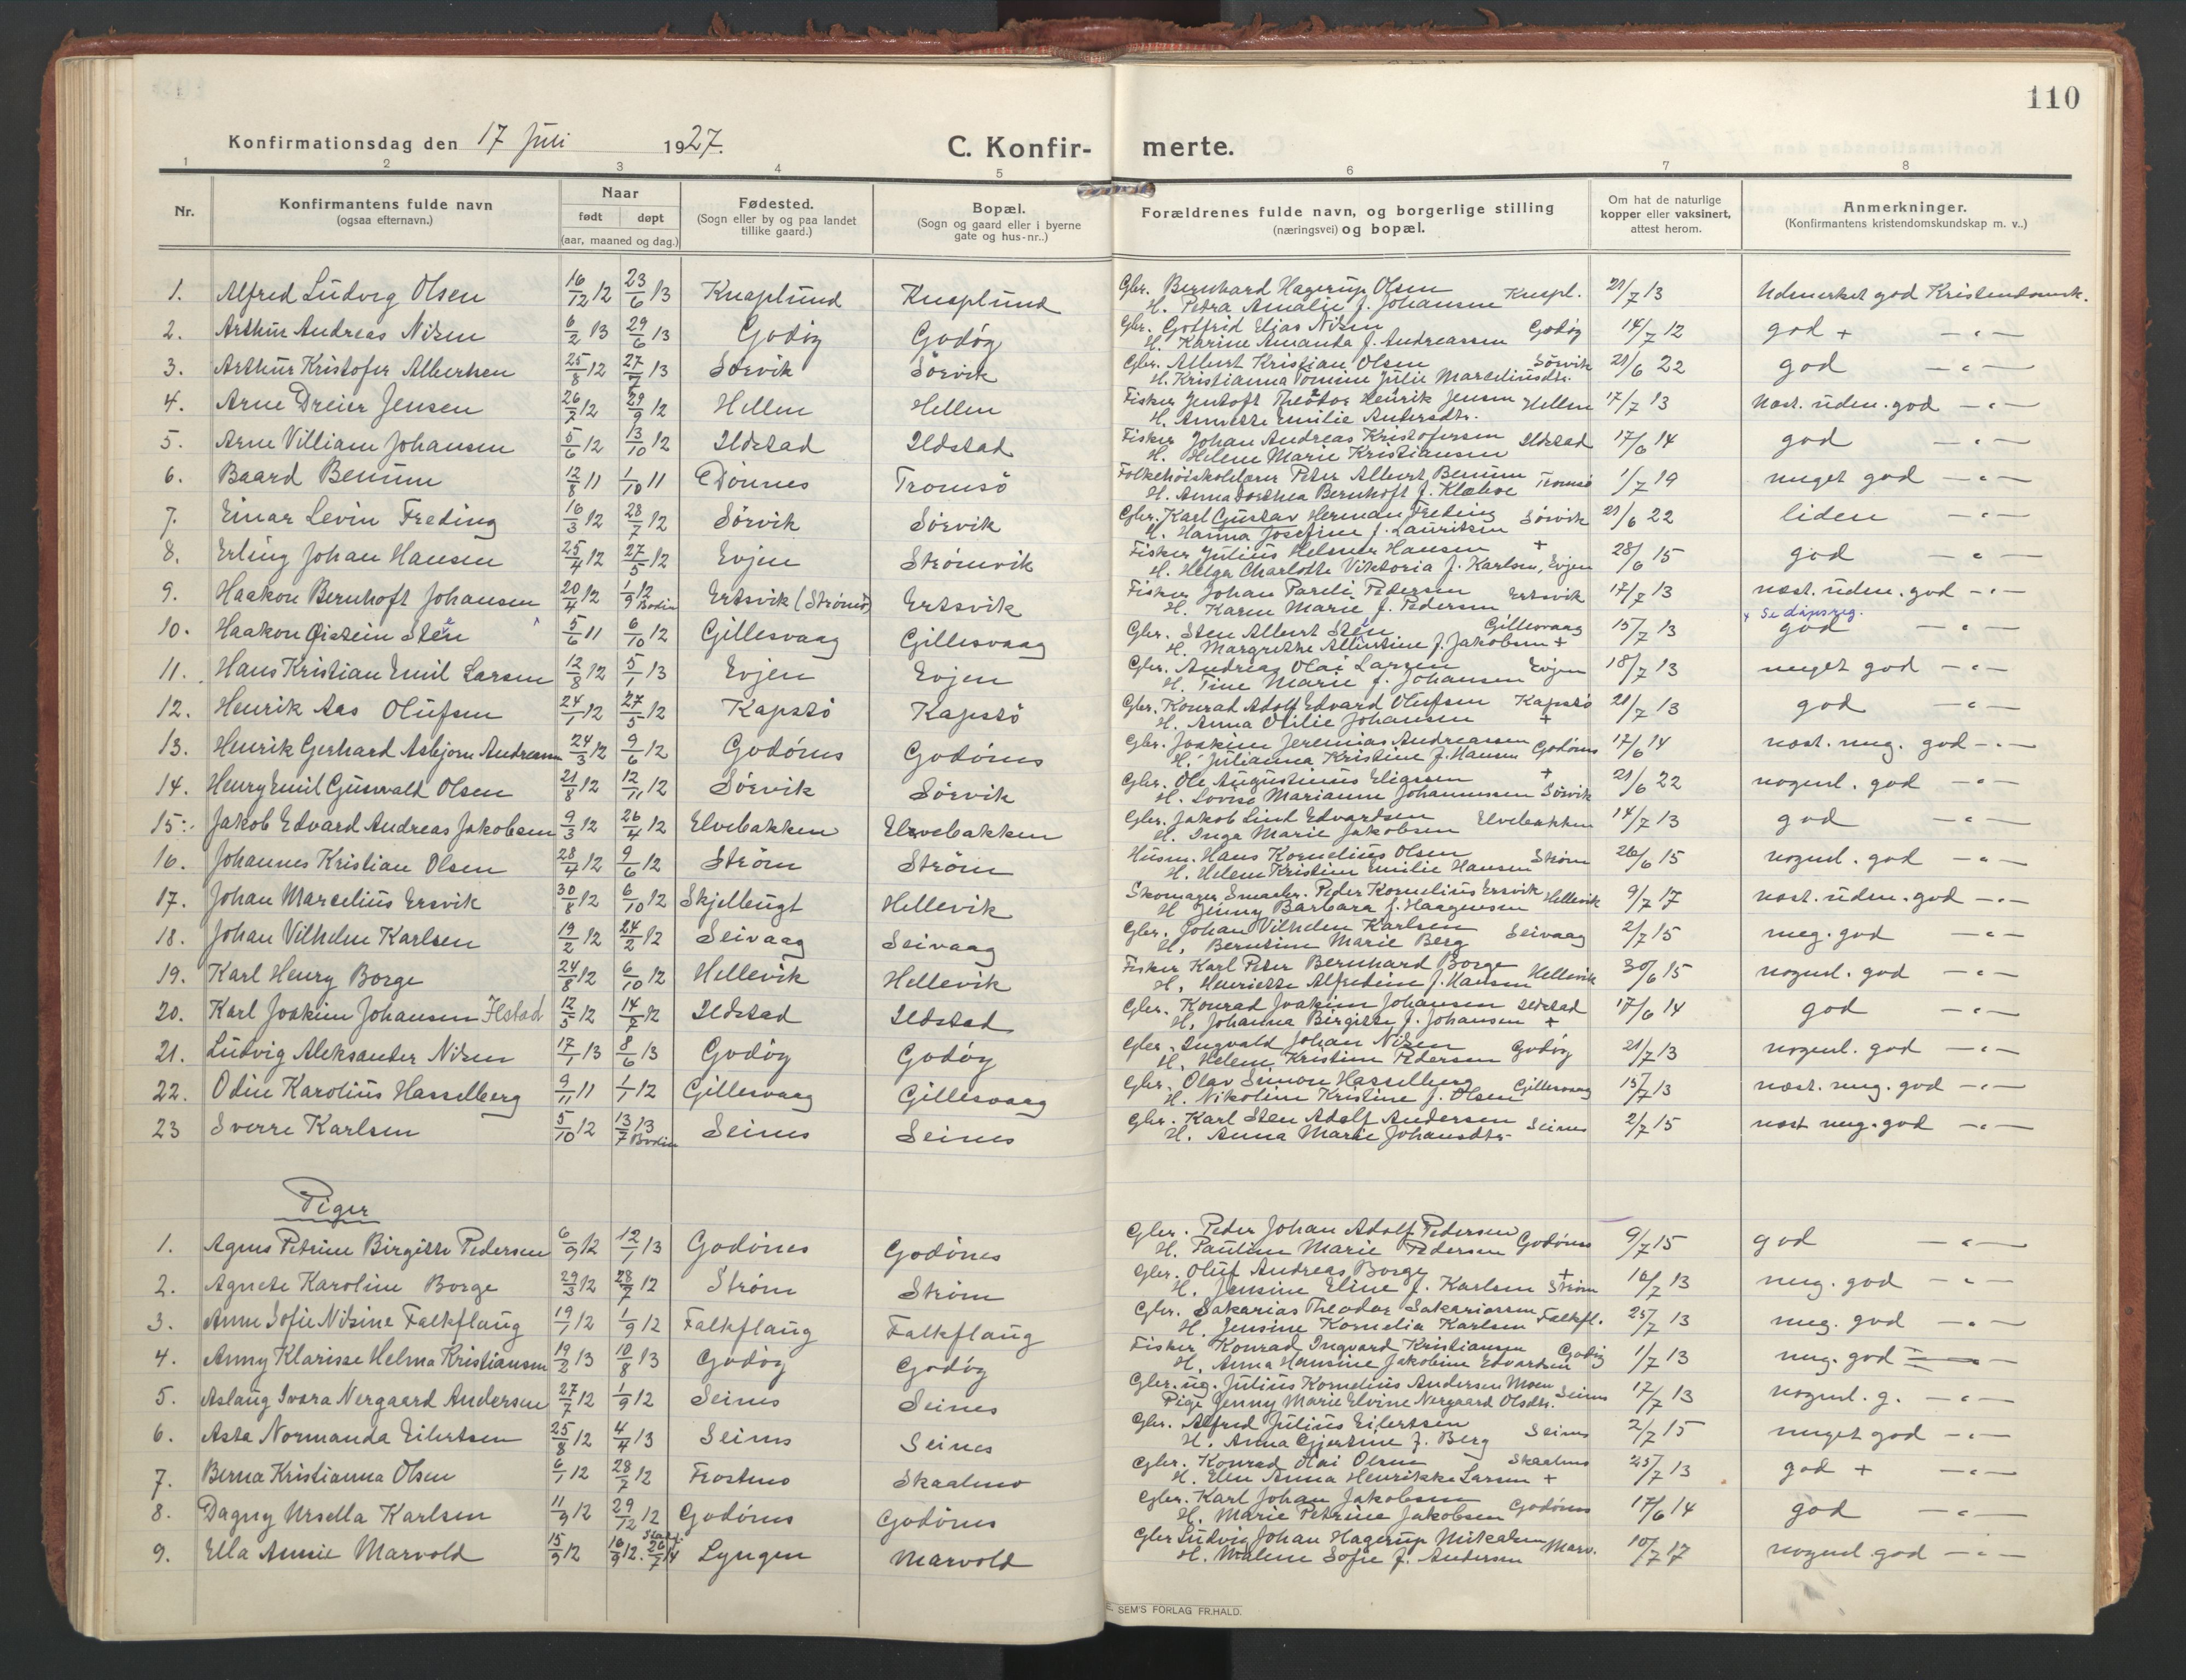 110
Konfirmationsdag den 17 Juli 1927.
C. Konfir- merte.
1 2 3 4 5 6 7 8
Nr.
Konfirmantens fulde navn
(ogsaa efternavn.)
Naar
født døpt
(aar, maaned og dag.)
Fødested.
(Sogn eller by og paa landet
tillike gaard.)
Bopæl.
(Sogn og gaard eller i byerne
gate og hus-nr..)
Forældrenes fulde navn, og borgerlige stilling
(næringsvei) og bopæl.
Om hat de naturlige
kopper eller vaksinert,
attest herom.
Anmerkninger.
(Konfirmantens kristendomskundskap m. v..)
1. Alfred Ludvig Olsen 16/12 12 23/6 13 Knaplund Knaplund Gbr. Bernhard Hagerup Olsen Knapl. 21/7 13 Udmerket god Kristendomsk.
H. Petra Amalie f. Johansen
2. Arthur Andreas Nilsen 6/2 13 29/6 13 Godøy Godøy Gbr. Gotfrid Elias Nilsen Godøy 14/7 12 god + — " —
H. Karine Amanda f. Andreassen
3. Arthur Kristofer Albertsen 25/8 12 27/7 13 Sørvik Sørvik Gbr. Albert Kristian Olsen Sørvik 21/6 22 god — " —
H. Kristianna Tomine Julie Marceliusdtr.
4. Arne Dreier Jensen 26/7 12 29/9 12 Hellen Hellen Fisker Jentoft Theodor Henrik Jensen Hellen 17/7 13 næst. uden. god — " —
H. Annette Emilie Andersdtr.
5. Arne Villiam Johansen 5/6 12 13/10 12 Ildstad Ildstad Fisker Johan Andreas Kristofersen Ildstad 17/6 14 god — " —
H. Helene Marie Kristiansen
6. Baard Benum 12/8 11 1/10 11 Dønnes Tromsø Folkehøiskolelærer Peter Albert Benum Tromsø 1/7 19 meget god — " —
H. Anna Dorthea Bernhoft f. Klæboe
7. Einar Levin Freding 16/3 12 28/7 12 Sørvik Sørvik Gbr. Karl Gustav Herman Freding Sørvik 21/6 22 liden — " —
H. Hanna Josefine f. Lauritsen
8. Erling Johan Hansen 25/4 12 27/5 12 Evjen Strømvik Fisker Julius Helmer Hansen + 28/6 15 god — " —
H. Helga Charlotte Viktoria f. Karlsen, Evjen
9. Haakon Bernhoft Johansen 20/4 12 1/9 12 Bodin Ertsvik (Strømø) Ertsvik Fisker Johan Pareli Pedersen Ertsvik 17/7 13 næst. uden. god — " —
H. Karen Marie f. Pedersen
10. Haakon Øistein Sten 5/6 11 6/10 12 Gillesvaag Gillesvaag Gbr. Sten Albert Sten Gillesvaag 15/7 13 god — " —
x Se dåpsreg.
H. Margrethe Albertine f. Jakobsen +
11. Hans Kristian Emil Larsen 12/8 12 5/1 13 Evjen Evjen Gbr. Andreas Olai Larsen Evjen 18/7 13 meget god — " —
H. Tine Marie f. Johansen
12. Henrik Aas Olufsen 24/1 12 27/5 12 Kapstø Kapstø Gbr. Konrad Adolf Edvard Olufsen Kapstø 21/7 13 god — " —
H. Anna Otilie Johansen +
13. Henrik Gerhard Asbjørn Andreassen 24/3 12 9/6 12 Godønes Godønes Gbr. Joakim Jeremias Andreassen Godønes 17/6 14 næst. meg. god — " —
H. Julianna Kristine f. Hansen
14. Henry Emil Gunvald Olsen 21/8 12 12/11 12 Sørvik Sørvik Gbr. Ole Augustinus Eliassen + 21/6 22 nogenl. god — " —
H. Lovise Marianne Johannessen Sørvik
15. Jakob Edvard Andreas Jakobsen 9/3 12 26/4 12 Elvebakken Elvebakken Gbr. Jakob Lind Edvardsen Elvebakken 14/7 13 god — " —
H. Inga Marie Jakobsen
16. Johannes Kristian Olsen 28/4 12 9/6 12 Strøm Strøm Husm. Hans Kornelius Olsen Strøm 26/6 15 nogenl. god — " —
H. Helene Kristine Emilie Hansen
17. Johan Marcelius Ersvik 30/8 12 6/10 12 Skjellbugt Hellevik Skomager Smaabr. Peder Kornelius Ersvik Hellevik 9/7 17 næst. uden. god — " —
H. Jenny Barbara f. Haagensen
18. Johan Vilhelm Karlsen 19/2 12 24/2 12 Seivaag Seivaag Gbr. Johan Vilhelm Karlsen Seivaag 2/7 15 meg. god — " —
H. Berntine Marie Berg
19. Karl Henry Borge 24/8 12 6/10 12 Hellevik Hellevik Fisker Karl Peter Bernhard Borge Hellevik 30/6 15 nogenl. god — " —
H. Henriette Alfredine f. Hansen
20. Karl Joakim Johansen Ilstad 12/5 12 14/7 12 Ildstad Ildstad Gbr. Konrad Joakim Johansen Ildstad 17/6 14 god — " —
H. Johanna Birgitte f. Johansen +
21. Ludvig Aleksander Nilsen 17/1 13 8/6 13 Godøy Godøy Gbr. Ingvald Johan Nilsen Godøy 21/7 13 nogenl. god — " —
H. Helene Kristine Pedersen
22. Odin Karolius Hasselberg 9/11 11 1/1 12 Gillesvaag Gillesvaag Gbr. Olav Simon Hasselberg Gillesvaag 15/7 13 næst. meg. god — " —
H. Nikoline Kristine f. Olsen
23 Sverre Karlsen 5/10 12 13/7 13 Bodin Seines Seines Gbr. Karl Sten Adolf Andersen Seines 2/7 15 næst meg. god — " —
H. Anna Marie Johansdtr.
Piger
1. Agnes Petrine Birgitte Pedersen 6/9 12 12/1 13 Godønes Godønes Gbr. Peder Johan Adolf Pedersen Godønes 9/7 15 god — " —
H. Pauline Marie Pedersen
2. Agnete Karoline Borge 29/3 12 28/7 12 Strøm Strøm Gbr. Oluf Andreas Borge + 16/7 13 meg. god — " —
H. Jensine Eline f. Karlsen Strøm
3. Anne Sofie Nilsine Falkflaug 19/1 12 1/9 12 Falkflaug Falkflaug Gbr. Sakarias Theodor Sakariassen Falkfl. 25/7 13 meg. god — " —
H. Jensine Kornelia Karlsen
4. Anny Klarisse Helma Kristiansen 19/2 13 10/8 13 Godøy Godøy Fisker Konrad Ingvard Kristiansen Godøy 1/7 13 meg. god — " —
H. Anna Hansine Jakobine Edvardsen
5. Aslaug Ivara Nergaard Andersen 27/7 12 1/9 12 Seines Seines Gbr. ug. Julius Kornelius Andersen Moen Seines 17/7 13 nogenl. g. — " —
Pige Jenny Marie Elvine Nergaard Olsdtr.
6. Asta Normanda Eilertsen 25/8 12 4/4 13 Seines Seines Gbr. Alfred Julius Eilertsen Seines 2/7 15 meget god — " —
H. Anna Gjertine f. Berg
7. Berna Kristianna Olsen 6/1 12 28/7 12 Frostmo Skaalmo Gbr. Konrad Olai Olsen Skaalmo 25/7 13 god + — " —
H. Elen Anna Henrikke Larsen +
8. Dagny Ursella Karlsen 11/9 12 29/12 12 Godønes Godønes Gbr. Karl Johan Jakobsen Godønes 17/6 14 god — " —
H. Marie Petrine Jakobsen
9. Ella Annie Marvold 15/9 12 16/9 12. 26/7 14 Lyngen Marvold Gbr Ludvig Johan Hagerup Mikalsen Marv. 10/7 17 nogenl. god — " —
H. Malene Sofie f. Andersen
SEM'S FORLAG FR.HALD.